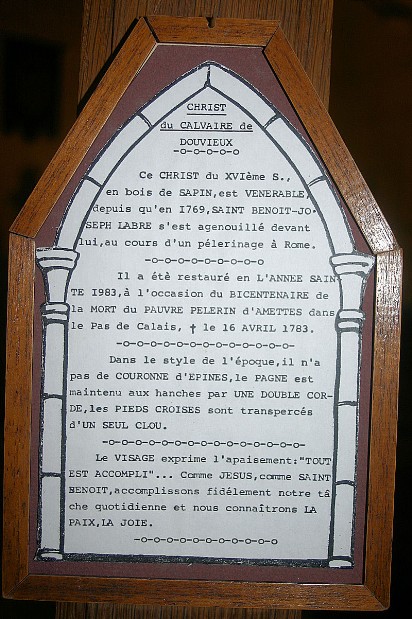 CHRIST
du CALVAIRE de
DOUVIEUX
-o-o-o-o-o
Ce CHRIST du XVIème S.,
en bois de SAPIN,est VENERABLE,
depuis qu'en I769,SAINT BENOIT-JO-
SEPH LABRE s'est agenouillé devant
lui,au cours d'un pélerinage à Rome.
-o-o-o-o-o-o-o-o-o-o-o-
Il a été restauré en L'ANNEE SAIN-
TE I983,à l'occasion du BICENTENAIRE de
la MORT du PAUVRE PELERIN d'AMETTES dans
le Pas de Calais, † le 16 AVRIL 1783.
-o-o-o-o-o-o-o-o-o-o-o-o-o-o-
Dans le style de l'époque,il n'a
pas de COURONNE d'EPINES,le PAGNE est
maintenu aux hanches par UNE DOUBLE COR-
DE,les PIEDS CROISES sont transpercés
d'UN SEUL CLOU.
-o-o-o-o-o-o-o-o-o-o-o-o-o-o-o-o-
Le VISAGE exprime l'apaisement:"TOUT
EST ACCOMPLI"... Comme JESUS,comme SAINT
BENOIT,accomplissons fidélement notre tâ
che quotidienne et nous connaîtrons LA
PAIX,LA JOIE.
-o-o-o-o-o-o-o-o-o-o-o